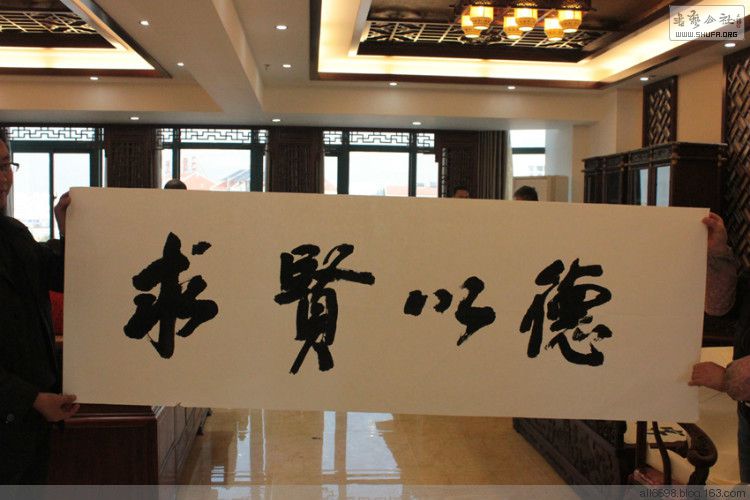 書藝公社
WWW.SHUFA.ORG
求賢以德
all6698.blog.163.com